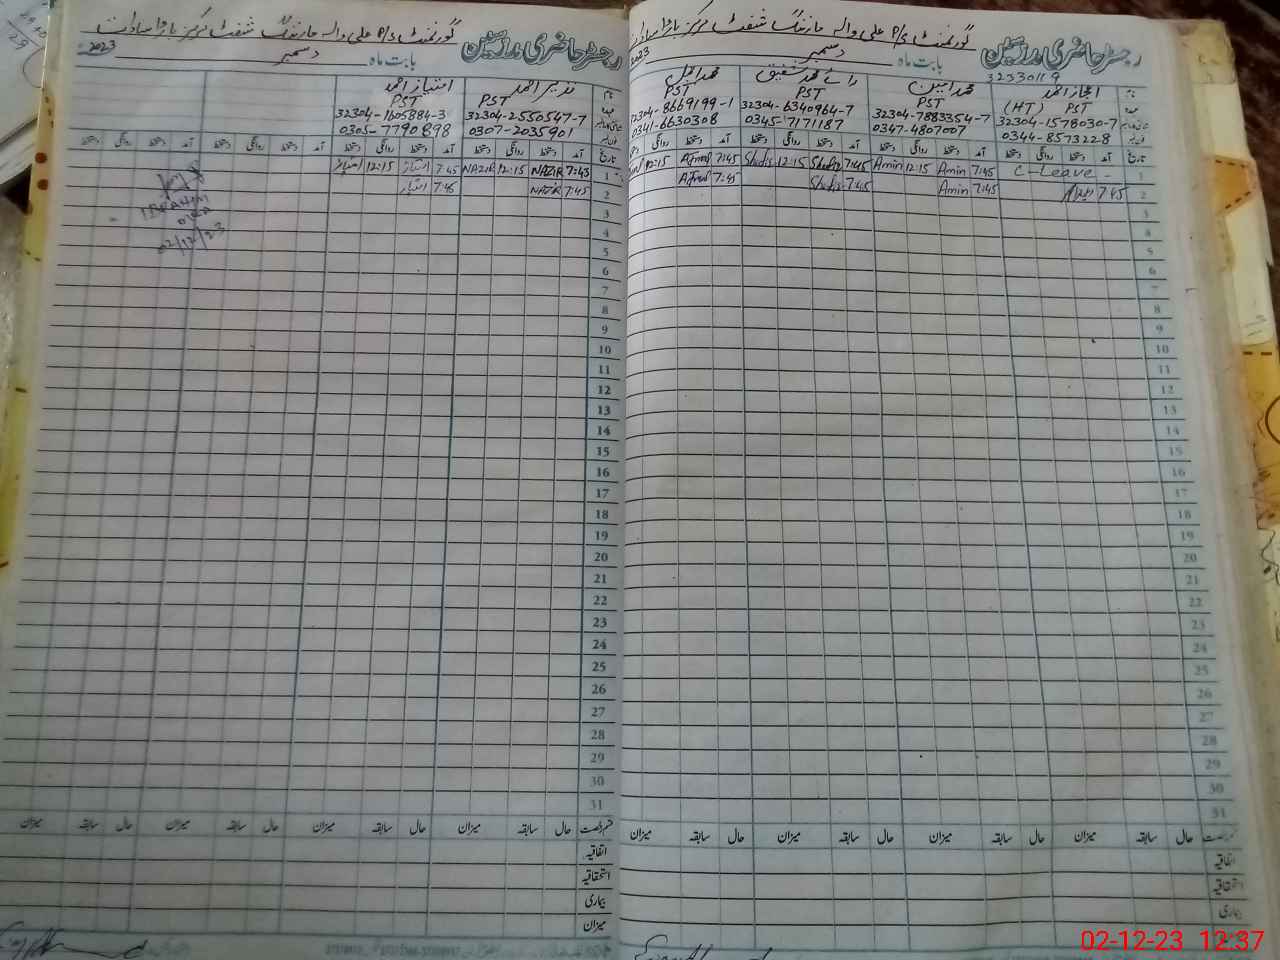 رجسٹر حاضری مدرسین
گورنمنٹ P/S علی والہ مارننگ شفٹ مرکز
بابت ماہ دسمبر 2023
32330119
نام اعجاز احمد محمد امین رائے محمد شفیق محمد افضل
(HT) PST PST PST PST
32304-1578030-7 32304-7883354-7 32304-6340964-7 32304-8669199-1
0344-8573228 0347-4807007 0345-7171187 0341-6630308
تاریخ آمد دستخط روانگی دستخط آمد دستخط روانگی دستخط آمد دستخط روانگی دستخط آمد دستخط روانگی
1 C-Leave - 7:45 Amin 12:15 Amin 7:45 Shafiq 12:15 Shafiq 7:45 Afzaal 12:15
2 7:45 7:45 Amin 7:45 Shafiq 7:45 Afzaal
3
4
5
6
7
8
9
10
11
12
13
14
15
16
17
18
19
20
21
22
23
24
25
26
27
28
29
30
31
حال سابقہ میزان حال سابقہ میزان حال سابقہ میزان حال سابقہ میزان
اتفاقیہ
استحقاقیہ
بیماری
رجسٹر حاضری مدرسین
گورنمنٹ P/S علی والہ مارننگ شفٹ مرکز
بابت ماہ دسمبر 2023
نام نذیر احمد امتیاز احمد
PST PST
32304-2550547-7 32304-1605884-3
0307-2035901 0305-7790898
تاریخ آمد دستخط روانگی دستخط آمد دستخط روانگی دستخط آمد دستخط روانگی دستخط آمد دستخط روانگی دستخط
1 7:43 NAZIR 12:15 NAZIR 7:45 امتیاز 12:15 امتیاز
2 7:45 NAZIR 7:45 امتیاز
IBRAHIM
02/12/23
3
4
5
6
7
8
9
10
11
12
13
14
15
16
17
18
19
20
21
22
23
24
25
26
27
28
29
30
31
قسم رخصت حال سابقہ میزان حال سابقہ میزان حال سابقہ میزان حال سابقہ میزان
اتفاقیہ
استحقاقیہ
بیماری
میزان
02-12-23 12:37